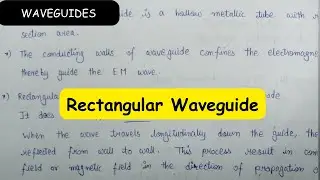 WAVEGUIDES
is a hollow metallic tube with
section area.
*) The conducting walls of waveguide confines the electromagne
thereby guide the EM wave.
Rectangular Waveguide
*) Rectangular
It does
When the wave travels longitudinally down the guide, the
reflected from wall to wall. This process result in
field or magnetic field in the direction of propagation